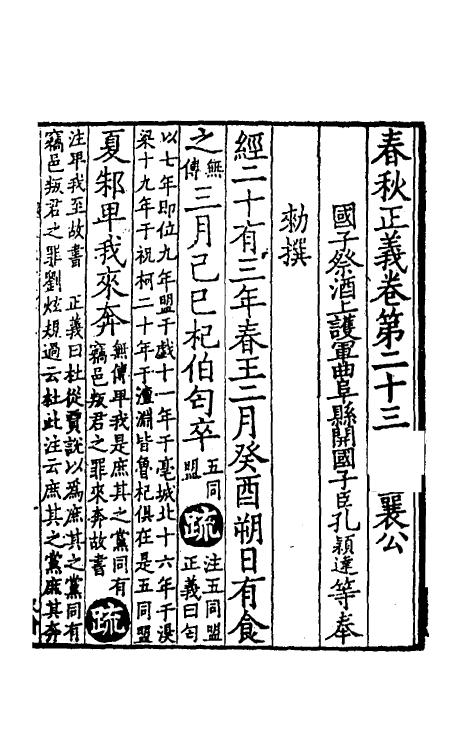 春秋正義卷第二十三　襄公
國子祭酒上護軍曲阜縣開國子臣孔穎達等奉
勑撰
經二十有三年春王二月癸酉朔日有食
之無傳三月己巳杞伯匄卒五同盟疏注五同盟正義曰匄
以七年即位九年盟于戲十一年于亳城北十六年于湨
梁十九年于祝柯二十年于澶淵皆魯杞俱在是五同盟
夏邾畀我來奔無傳畀我是庶其之黨同有竊邑叛君之罪來奔故書疏
注畀我至故書　正義曰杜從賈說以爲庶其之黨同有
竊邑叛君之罪劉炫規過云杜此注云庶其之黨庶其奔